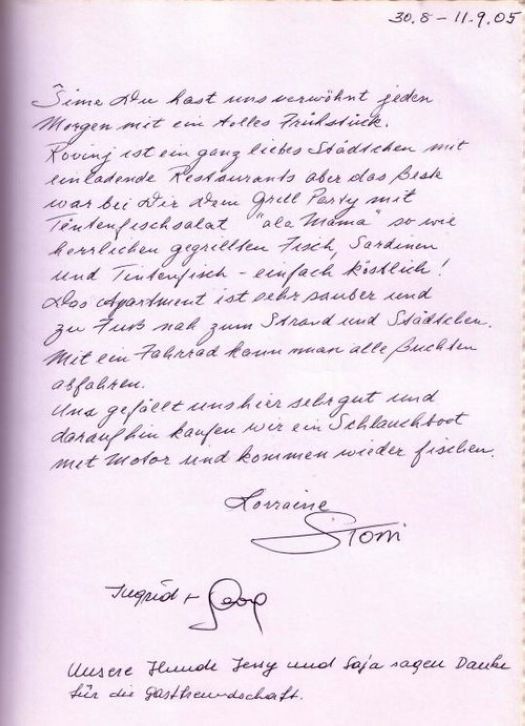 30.8 – 11.9.05
Sime Du hast uns verwöhnt jeden
Morgen mit ein tolles Frühstück.
Rovinj ist ein ganz liebes Städtchen mit
einladende Restaurants aber das Beste
war bei Dir Dein Grill Party mit
Tintenfischsalat "ala Mama" so wie
herrlichen gegrillten Fisch, Sardinen
und Tintenfisch – einfach köstlich!
Das Apartment ist sehr sauber und
zu Fuß nah zum Strand und Städtchen.
Mit ein Fahrrad kann man alle Buchten
abfahren.
Uns gefällt uns hier sehr gut und
daraufhin kaufen wir ein Schlauchboot
mit Motor und kommen wieder fischen.
Lorraine
Toni
Ingrid + Georg
Unsere Hunde Jeny und Saja sagen Danke
für die Gastfreundschaft.